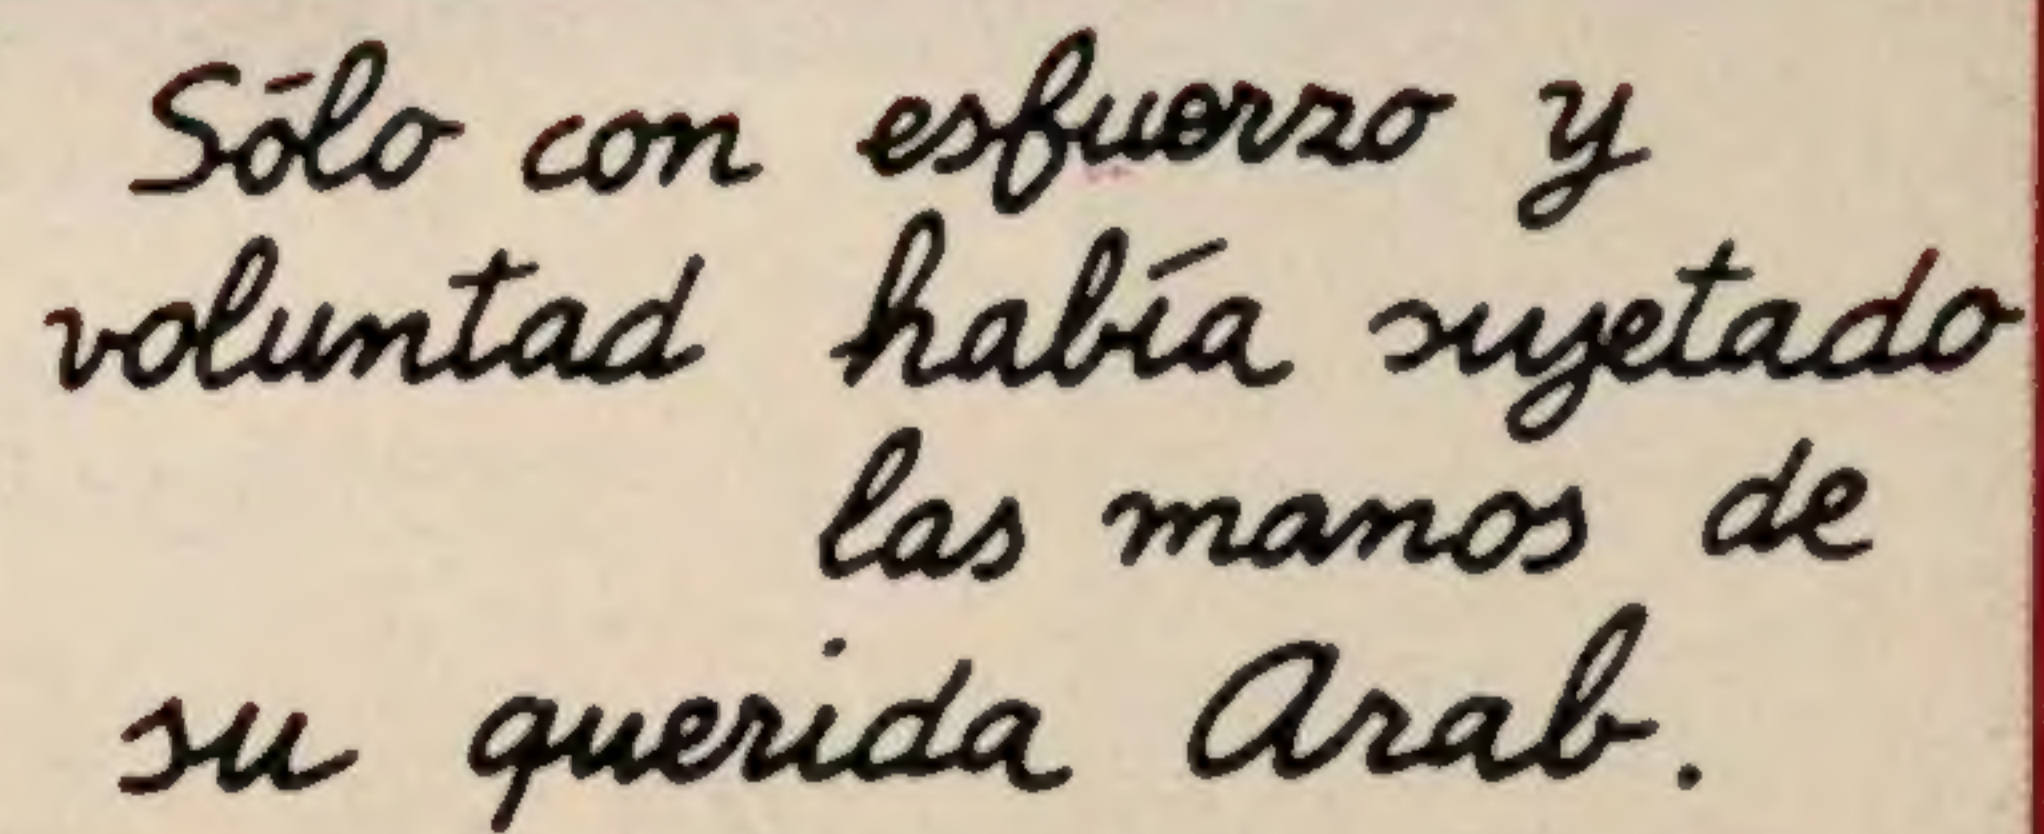 Sólo con esfuerzo y
voluntad había sujetado
las manos de
su querida Arab.